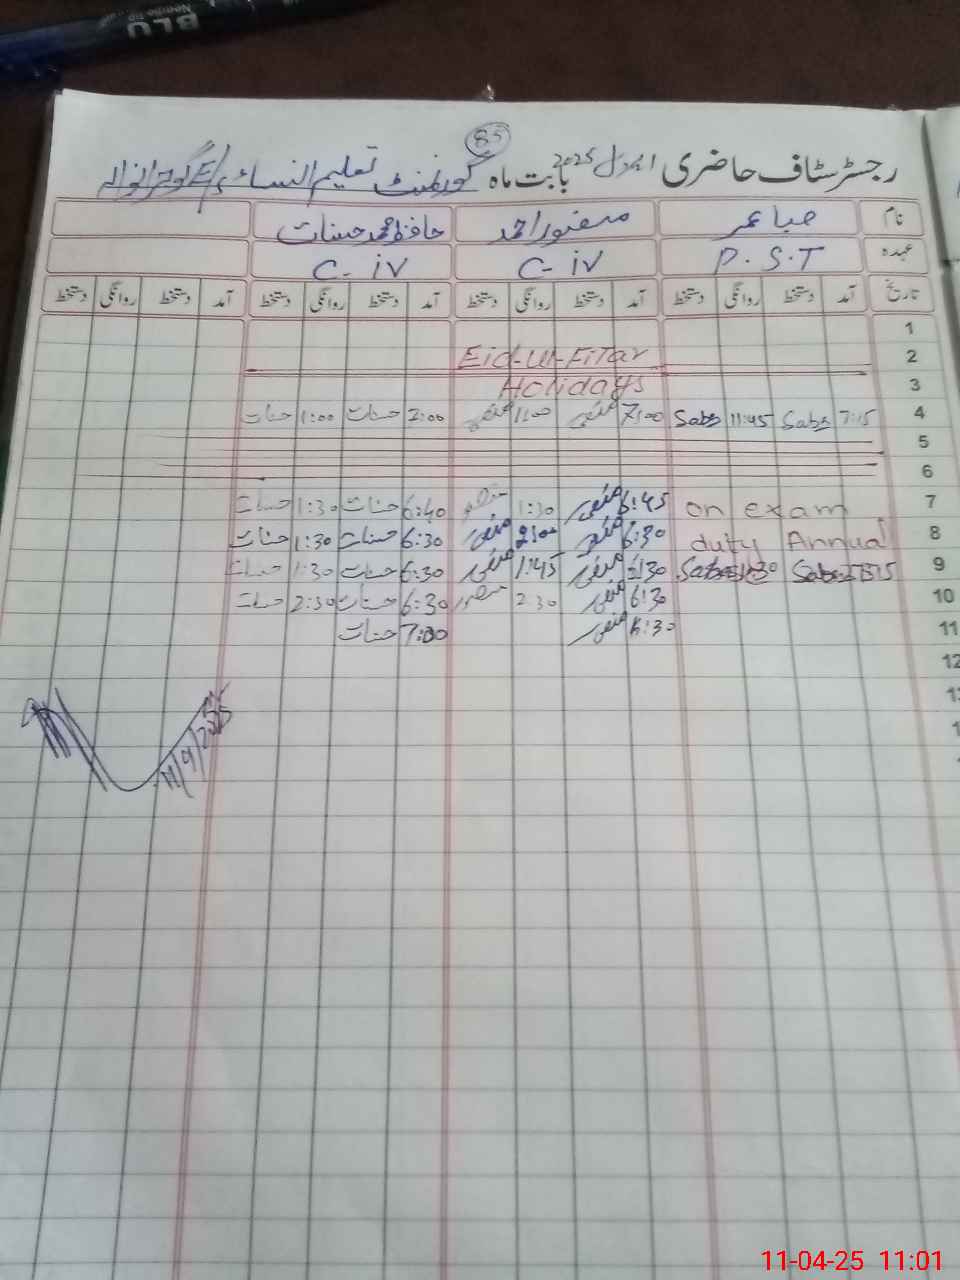 BLU
85
رجسٹر سٹاف حاضری اپریل 2025 بابت ماہ گورنمنٹ تعلیم النساء گوجرانوالہ
نام صبا عمر منصور احمد حافظ محمد حسنات
عہدہ P.S.T C-iv C-iv
تاریخ آمد دستخط روانگی دستخط آمد دستخط روانگی دستخط آمد دستخط روانگی دستخط آمد دستخط روانگی دستخط
1
2 Eid-Ul-Fitar
3 Holidays
4 7:15 Saba 11:45 Saba 7:00 11:00 حسنات 1:00 حسنات
5
6
7 on exam 6:45 1:30 6:40 حسنات 1:30 حسنات
8 duty Annual 6:30 2:00 6:30 حسنات 1:30 حسنات
9 1:45 6:30 حسنات 1:30 حسنات
10 6:30 منصور 2:30 6:30 حسنات 2:30 حسنات
11 7:00 حسنات
12
11/4/2025
11-04-25 11:01